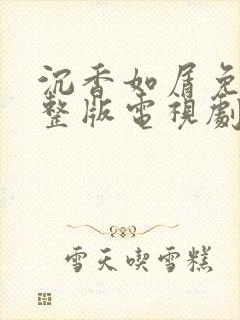 沉香如屑免
整版電視劇
雪天喫雪糕